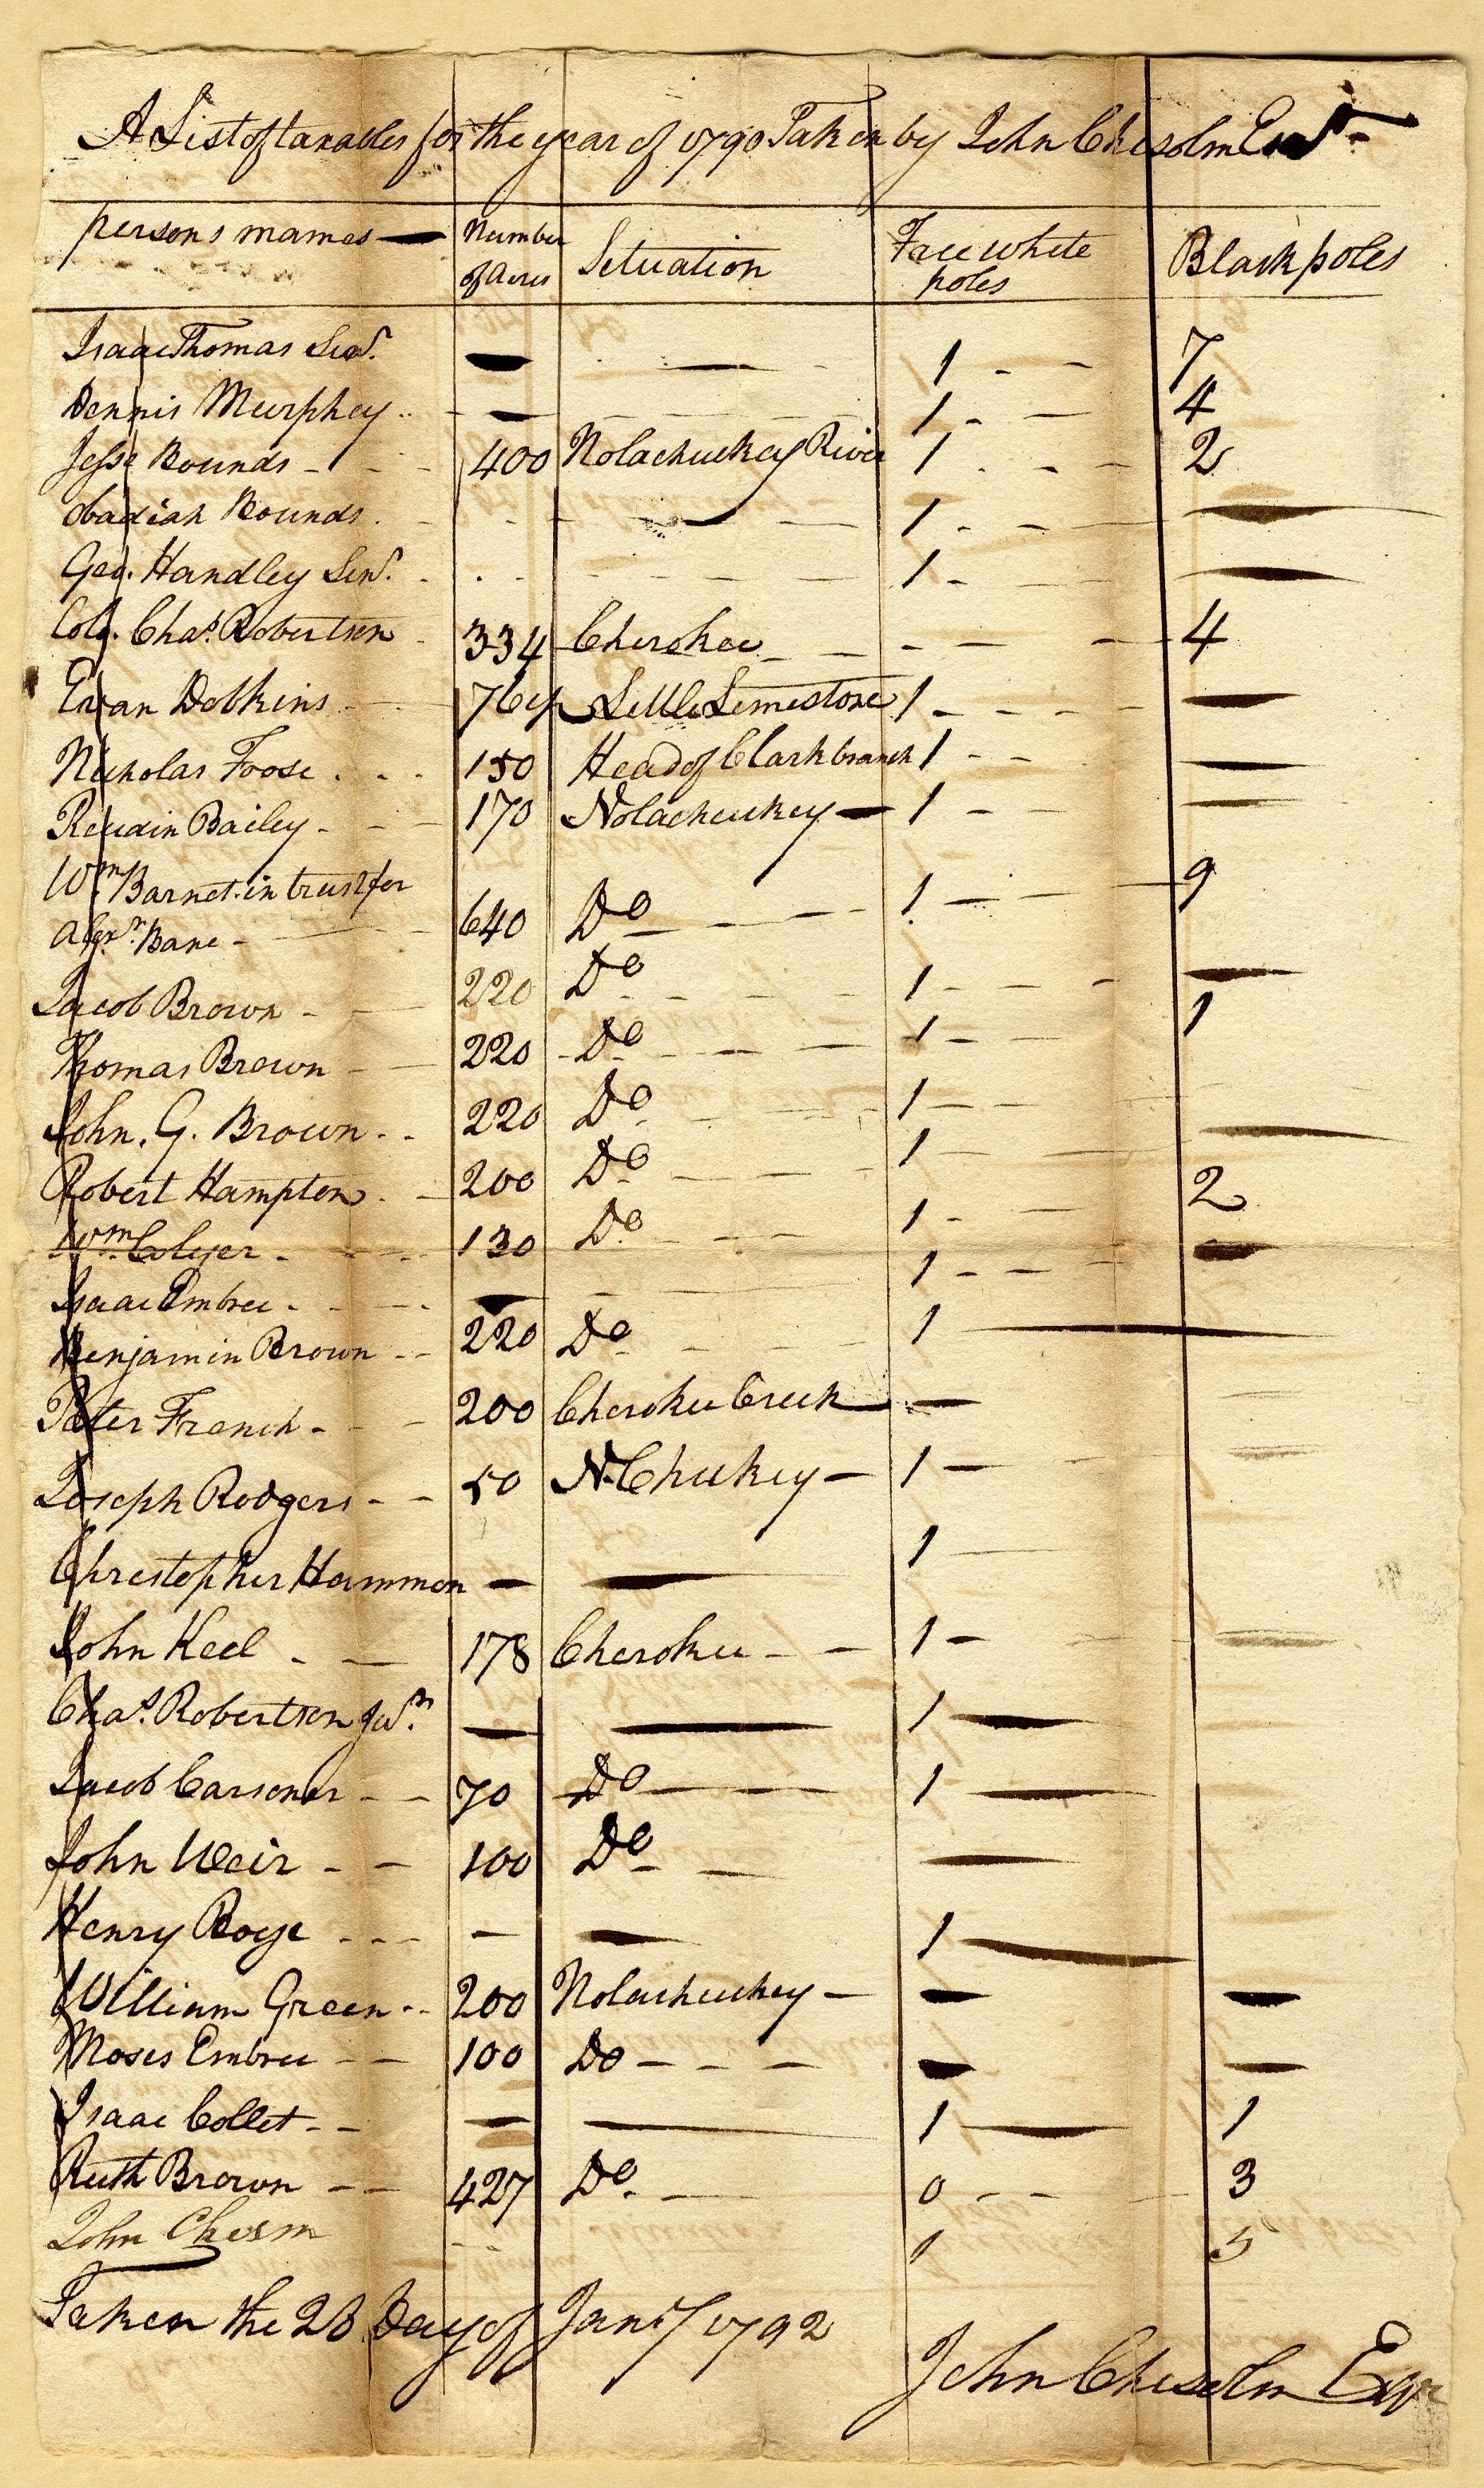 A List of taxables for the year of 1790 Taken by John Chesolm Esqr
persons names Number of Acres Situation Free white poles Black poles
Isaac Thomas Senr. — — 1 7
Dennis Murphey — — 1 4
Jesse Bounds 400 Nolachuckey River 1 2
Obadiah Bounds — 1 —
Geo. Handley Senr. 1 —
Colo. Chas. Robertson 334 Cherokee — 4
Evan Dobkins Little Limestone 1 —
Nicholas Foose 150 Head of Clark branch 1 —
Bailey 170 Nolachuckey — 1 —
Wm. Barnet in trust for 1 9
Alexr. Bane 640 Do
Jacob Brown 220 Do 1 —
Thomas Brown 220 Do 1 1
John. G. Brown 220 Do 1
Robert Hampton 200 Do 1 —
Wm. Colyer 130 Do 1 2
Isaac Embree — 1 —
Benjamin Brown 220 Do 1 —
Peter French 200 Cherokee Creek —
Joseph Rodgers 50 N. Chuckey — 1 —
Christopher Hammon — — 1
John Keel 178 Cherokee 1 —
Chas. Robertson Junr. — — 1 —
Jacob Carsoner 70 Do 1 —
John Weir 100 Do —
Henry Boye — — 1 —
William Green 200 Nolachuckey — — —
Moses Embree 100 Do — —
Isaac Collet — — 1 1
Ruth Brown 427 Do 0 3
John Chesm 1 5
Taken the 28 Day of Jany 1792
John Chesolm Esqr